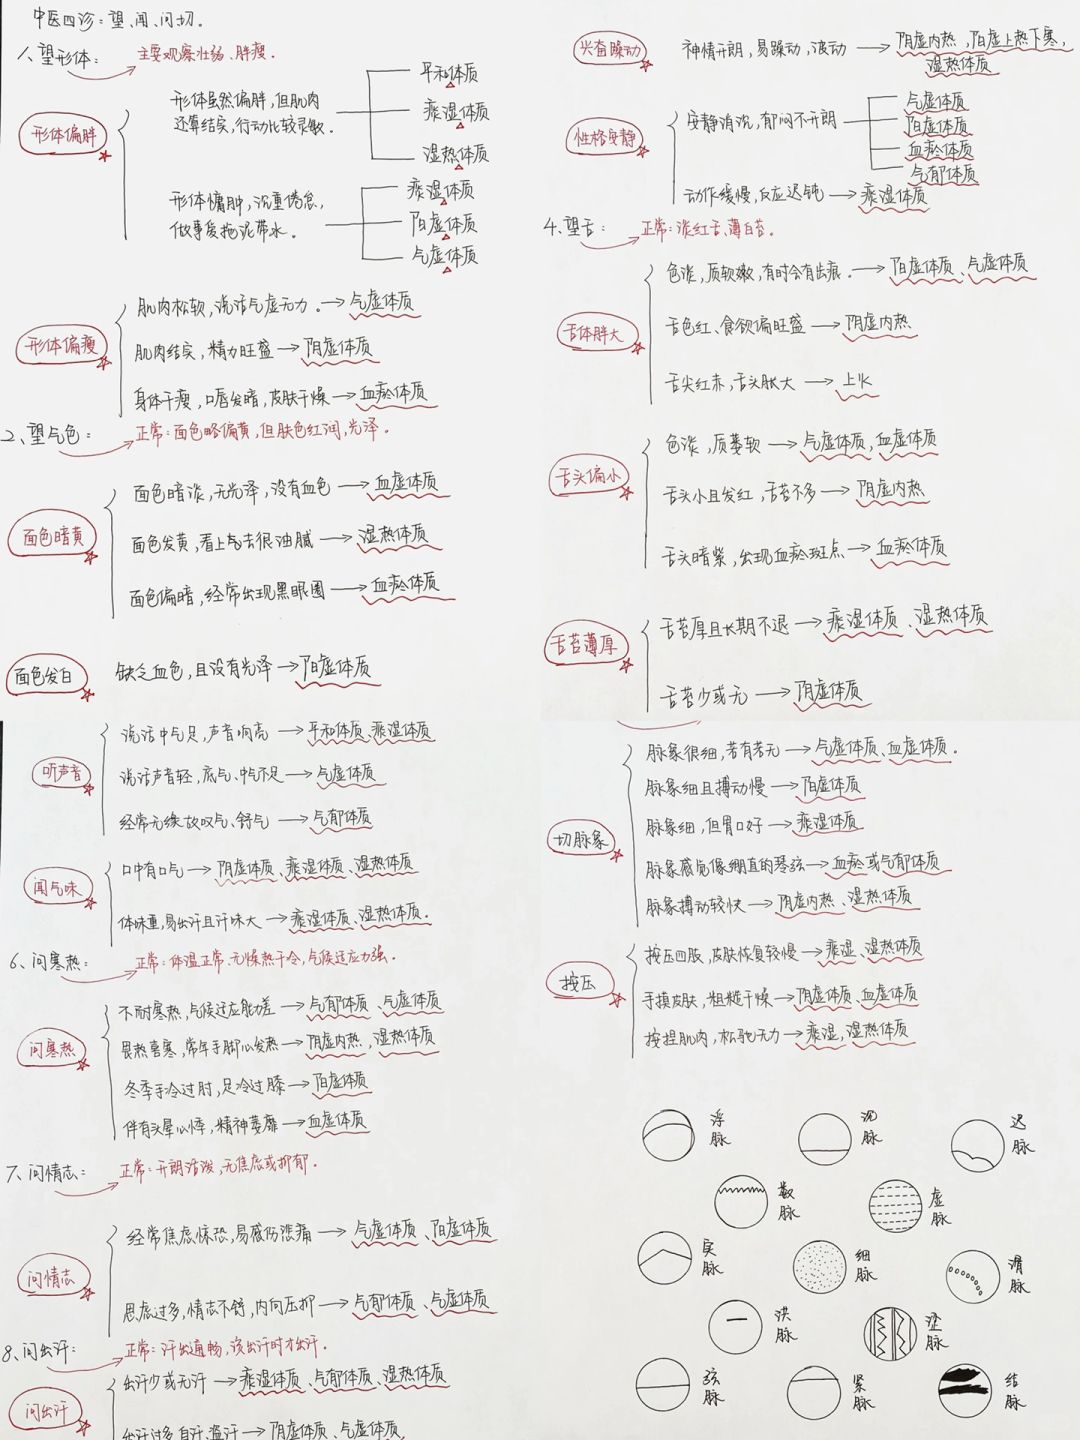 中医四诊：望、闻、问、切。
1、望形体：
主要观察壮弱、胖瘦。
形体偏胖
形体虽然偏胖，但肌肉
还算结实，行动比较灵敏。
平和体质
痰湿体质
湿热体质
形体慵肿，沉重倦怠，
做事爱拖泥带水。
痰湿体质
阳虚体质
气虚体质
形体偏瘦
肌肉松软，说话气虚无力。→气虚体质
肌肉结实，精力旺盛→阴虚体质
身体干瘦，口唇发暗，皮肤干燥→血瘀体质
2、望气色：
正常：面色略偏黄，但肤色红润，光泽。
面色暗黄
面色暗淡，无光泽，没有血色→血虚体质
面色发黄，看上气去很油腻→湿热体质
面色偏暗，经常出现黑眼圈→血瘀体质
面色发白
缺乏血色，且没有光泽→阳虚体质
兴奋躁动
神情开朗，易躁动，波动→阴虚内热，阳虚上热下寒，
湿热体质
性格安静
安静消沉，郁闷不开朗
气虚体质
阳虚体质
血瘀体质
气郁体质
动作缓慢，反应迟钝→痰湿体质
4、望舌：
正常：淡红舌、薄白苔。
舌体胖大
色淡，质软嫩，有时会有齿痕。→阳虚体质、气虚体质
舌色红、食欲偏旺盛→阴虚内热
舌尖红赤，舌头胀大→上火
舌头偏小
色淡，质萎软→气虚体质，血虚体质
舌头小且发红，舌苔不多→阴虚内热
舌头暗紫，出现血瘀斑点→血瘀体质
舌苔薄厚
舌苔厚且长期不退→痰湿体质、湿热体质
舌苔少或无→阴虚体质
听声音
说话中气足，声音响亮→平和体质、痰湿体质
说话声音轻，底气、中气不足→气虚体质
经常无缘故叹气、舒气→气郁体质
闻气味
口中有口气→阴虚体质、痰湿体质、湿热体质
体味重，易出汗且汗味大→痰湿体质、湿热体质.
6、问寒热：
正常：体温正常、无燥热干冷，气候适应力强.
问寒热
不耐寒热，气候适应能力差→气郁体质、气虚体质
畏热喜寒，常年手脚心发热→阴虚内热，湿热体质
冬季手冷过肘，足冷过膝→阳虚体质
伴有头晕心悸，精神萎靡→血虚体质
7、问情志：
正常：开朗活泼，无焦虑或抑郁.
问情志
经常焦虑惊恐，易感伤悲痛→气虚体质、阳虚体质
思虑过多，情志不舒，内向压抑→气郁体质、气虚体质
8、问出汗：
正常：汗出通畅，该出汗时才出汗.
问出汗
出汗少或无汗→痰湿体质、气郁体质、湿热体质
出汗过多，自汗、盗汗→阴虚体质、气虚体质
切脉象
脉象很细，若有若无→气虚体质、血虚体质.
脉象细且搏动慢→阳虚体质
脉象细，但胃口好→痰湿体质
脉象感觉像绷直的琴弦→血瘀或气郁体质
脉象搏动较快→阴虚内热、湿热体质
按压
按压四肢，皮肤恢复较慢→痰湿、湿热体质
手摸皮肤，粗糙干燥→阴虚体质、血虚体质
按捏肌肉，松驰无力→痰湿，湿热体质
浮脉
沉脉
迟脉
数脉
虚脉
实脉
细脉
滑脉
洪脉
涩脉
弦脉
紧脉
结脉